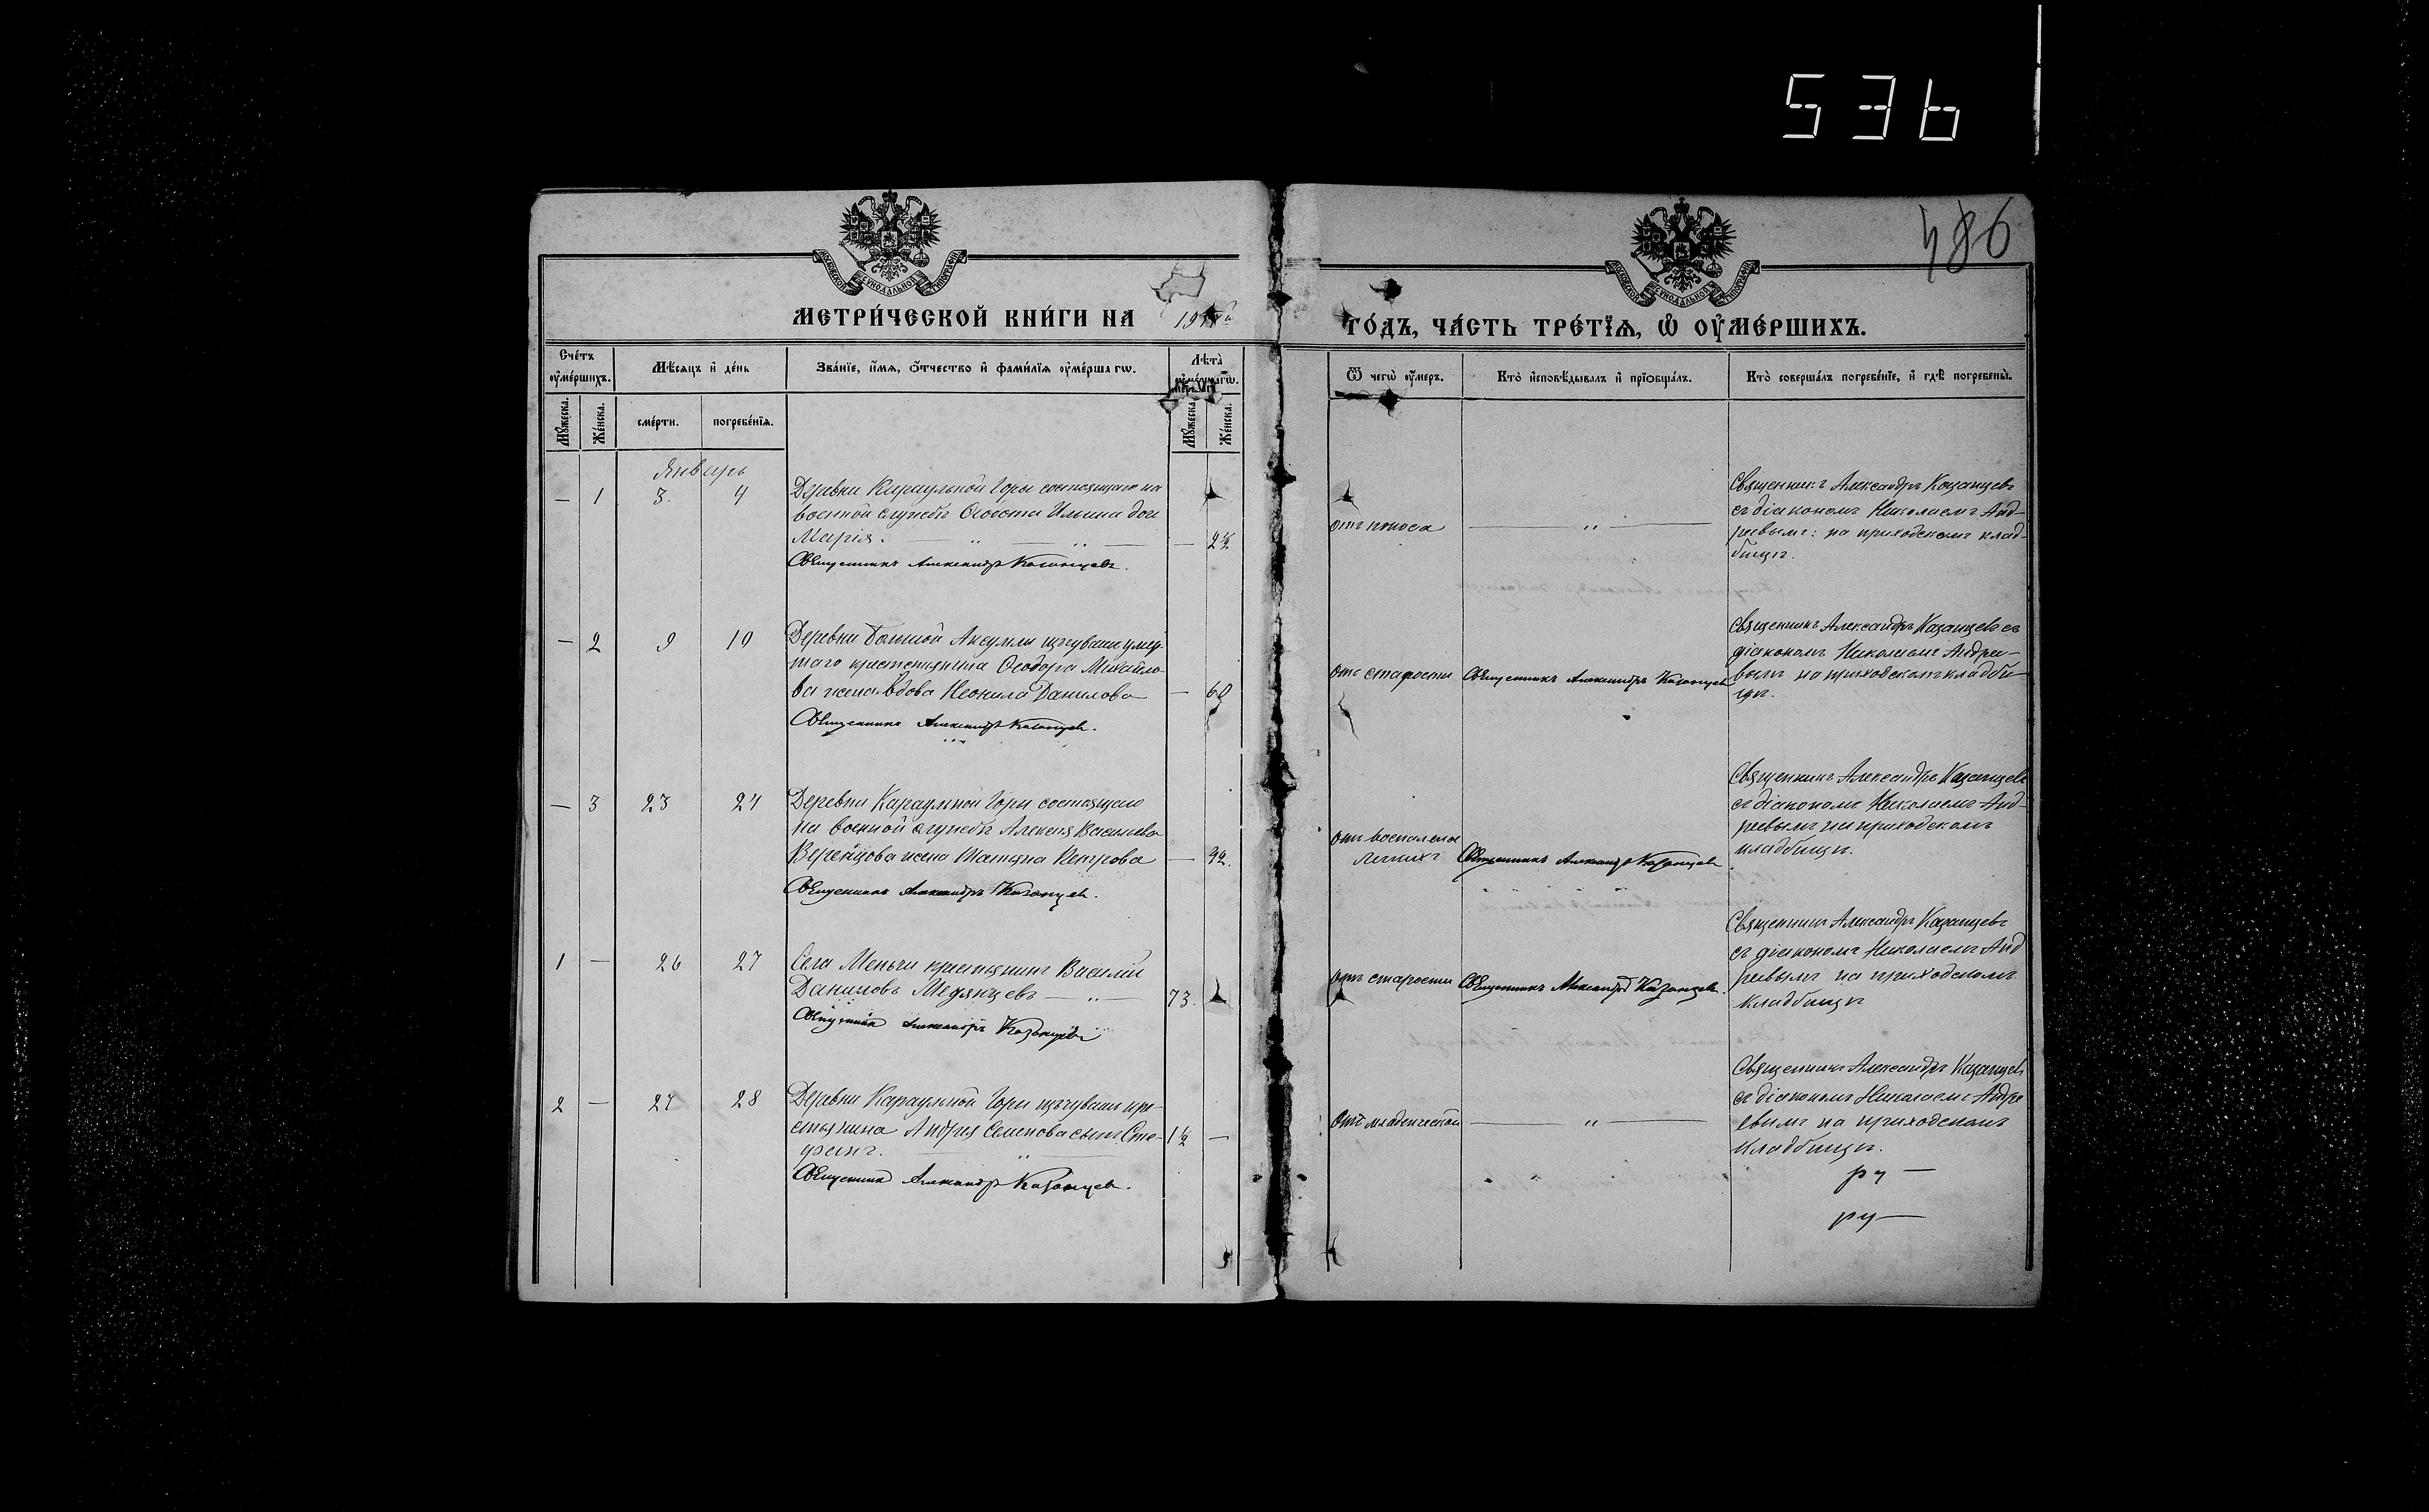 536
486
МОСКОВСКОЙ СѴНОДАЛЬНОЙ ТИПОГРАФІИ
МОСКОВСКОЙ СѴНОДАЛЬНОЙ ТИПОГРАФІИ
МЕТРИ́ЧЕСКОЙ КНИ́ГИ НА
ГО́ДЪ, ЧА́СТЬ ТРЕ́ТЇѦ, Ѡ҆ ОУ҆МЕ́РШИХЪ.
Сче́тъ оу҆ме́ршихъ.
Мѣ́сѧцъ и҆ де́нь
Зва́нїе, и҆́мѧ, ѻ҆́тчество и҆ фами́лїѧ оу҆ме́ршагѡ.
Лѣта̀
Ѿ чегѡ̀ оу҆́меръ.
Кто̀ и҆сповѣ́дывалъ и҆ прїѻбща́лъ.
Кто̀ соверша́лъ погребе́нїе, и҆ гдѣ̀ погребены̀.
Мꙋ́жеска.
Же́нска.
сме́рти.
погребе́нїѧ.
Мꙋ́жеска.
Же́нска.
Январь
— 1 3. 4 Деревни Караульной Горы состоящаго на
военной службѣ Ѳеокта Ильина дочь
Марія. — 2½
Священникъ Александръ Казанцевъ.
отъ поноса — „ —
Священникъ Александръ Казанцевъ
съ діакономъ Николаемъ Анд-
реевымъ: на приходскомъ клад-
бищѣ.
— 2 9 10 Деревни Большой Аксумлы изъ чувашъ умер-
шаго крестьянина Ѳеодора Михайло-
ва жена вдова Неонила Данилова — 60
Священникъ Александръ Казанцевъ.
отъ старости Священникъ Александръ Казанцевъ
Священникъ Александръ Казанцевъ съ
діакономъ Николаемъ Андре-
вымъ на приходскомъ кладби-
щѣ.
— 3 23 24 Деревни Караульной Горы состоящаго
на военной службѣ Алексѣя Васильева
Веренцова жена Татьяна Петрова —
Священникъ Александръ Казанцевъ.
отъ воспаленія
легкихъ Священникъ Александръ Казанцевъ
Священникъ Александръ Казанцевъ
съ діакономъ Николаемъ Анд-
реевымъ на приходскомъ
кладбищѣ.
1 — 26 27 Села крестьянинъ Василій
Даниловъ Медянцевъ — „ — 73.
Священникъ Александръ Казанцевъ
отъ старости Священникъ Александръ Казанцевъ.
Священникъ Александръ Казанцевъ
съ діакономъ Николаемъ Анд
реевымъ на приходскомъ
кладбищѣ
2 — 27 28 Деревни Караульной Горы изъ чувашъ кре-
стьянина Андрея Семенова сынъ Сте-
фанъ. 1½ —
Священникъ Александръ Казанцевъ.
отъ младенческой — „ —
Священникъ Александръ Казанцевъ
съ діакономъ Николаемъ Андре
евымъ на приходскомъ
кладбищѣ.
ру —
ру —